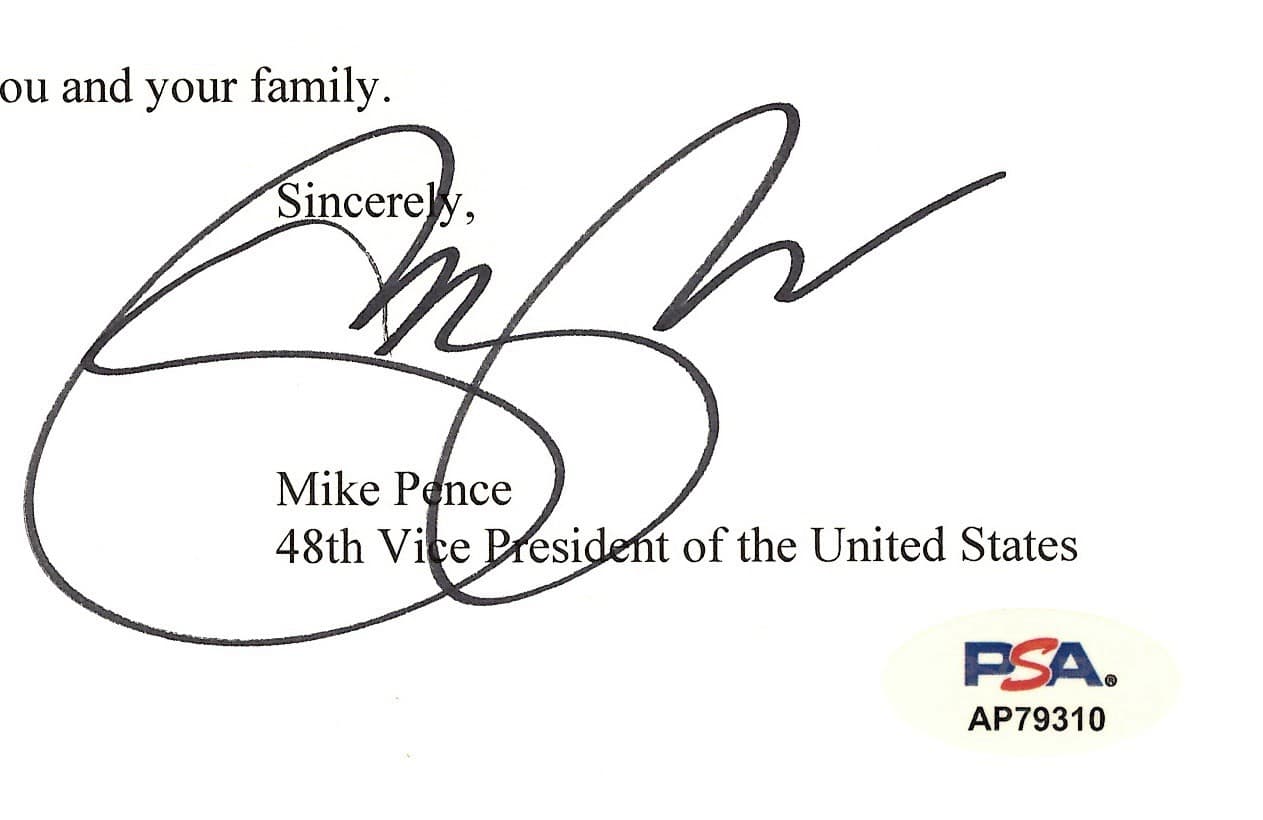 ou and your family.
Sincerely,
Mike Pence
48th Vice President of the United States
PSA®
AP79310